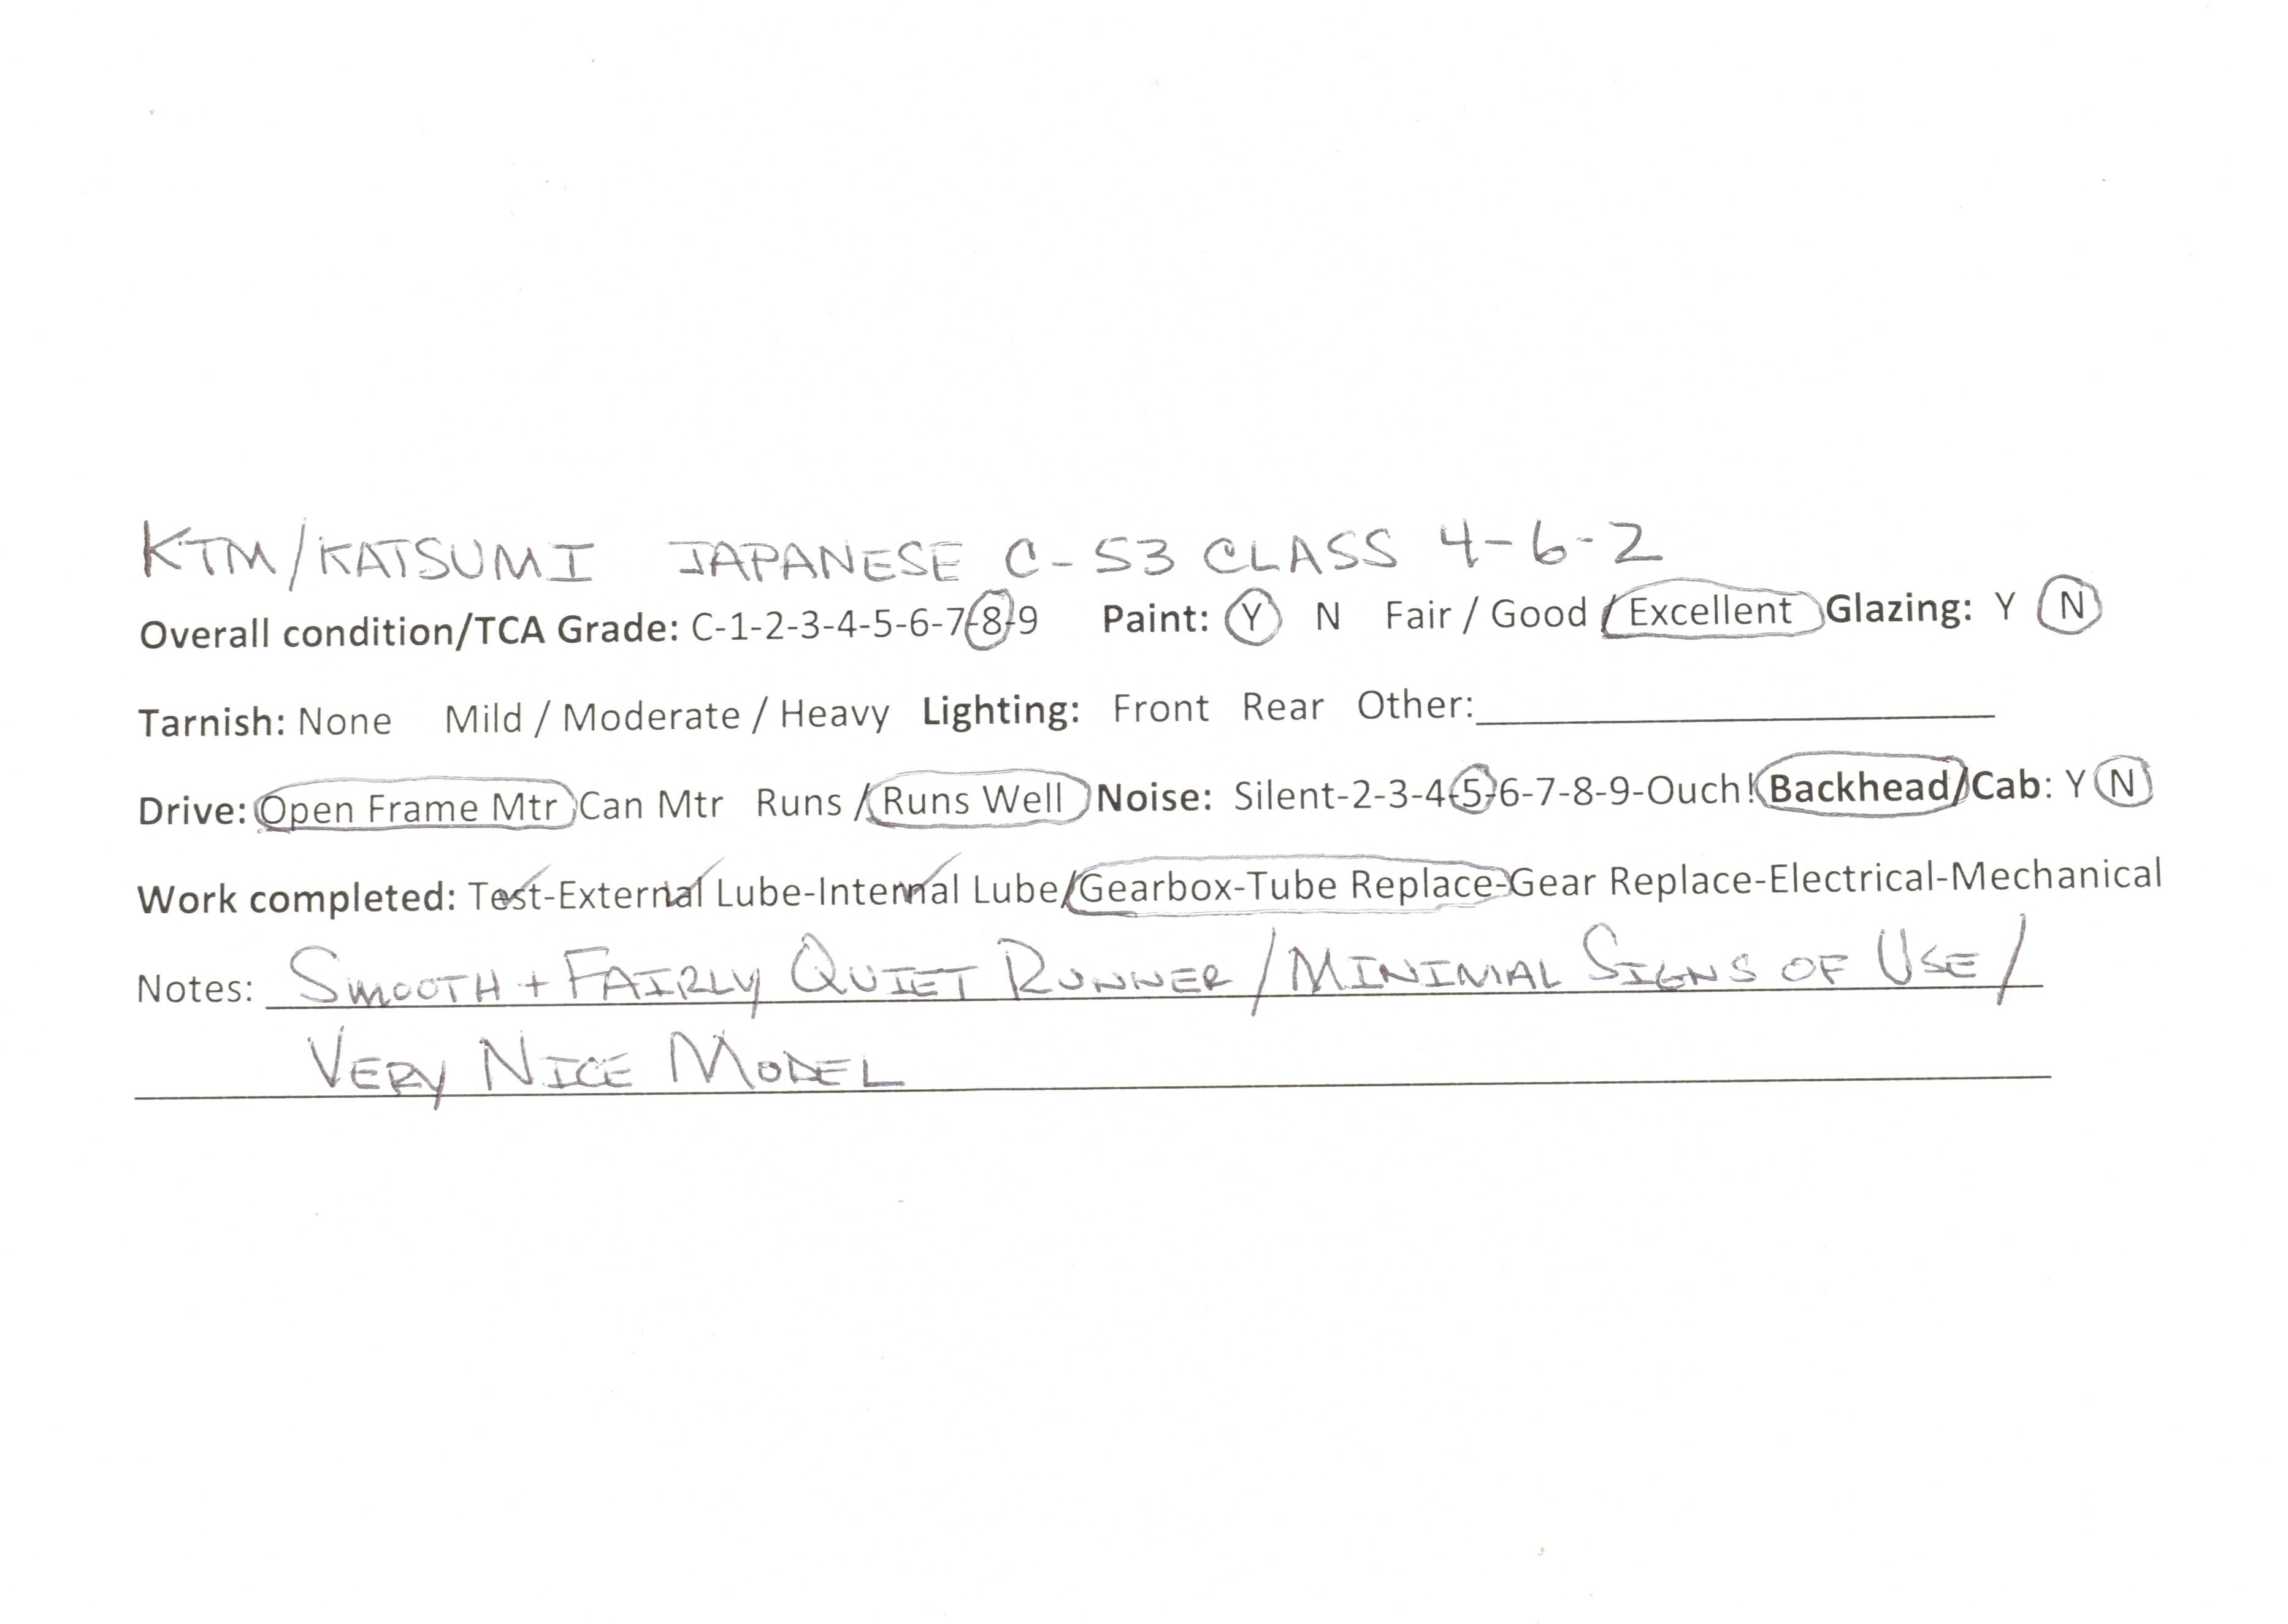 KTM/KATSUMI JAPANESE C-53 CLASS 4-6-2
Overall condition/TCA Grade: C-1-2-3-4-5-6-7-8-9 Paint: Y N Fair / Good / Excellent Glazing: Y N
Tarnish: None Mild / Moderate / Heavy Lighting: Front Rear Other:
Drive: Open Frame Mtr Can Mtr Runs / Runs Well Noise: Silent-2-3-4-5-6-7-8-9-Ouch! Backhead/Cab: Y N
Work completed: Test-External Lube-Internal Lube/Gearbox-Tube Replace-Gear Replace-Electrical-Mechanical
Notes: SMOOTH + FAIRLY QUIET RUNNER/MINIMAL SIGNS OF USE/
VERY NICE MODEL